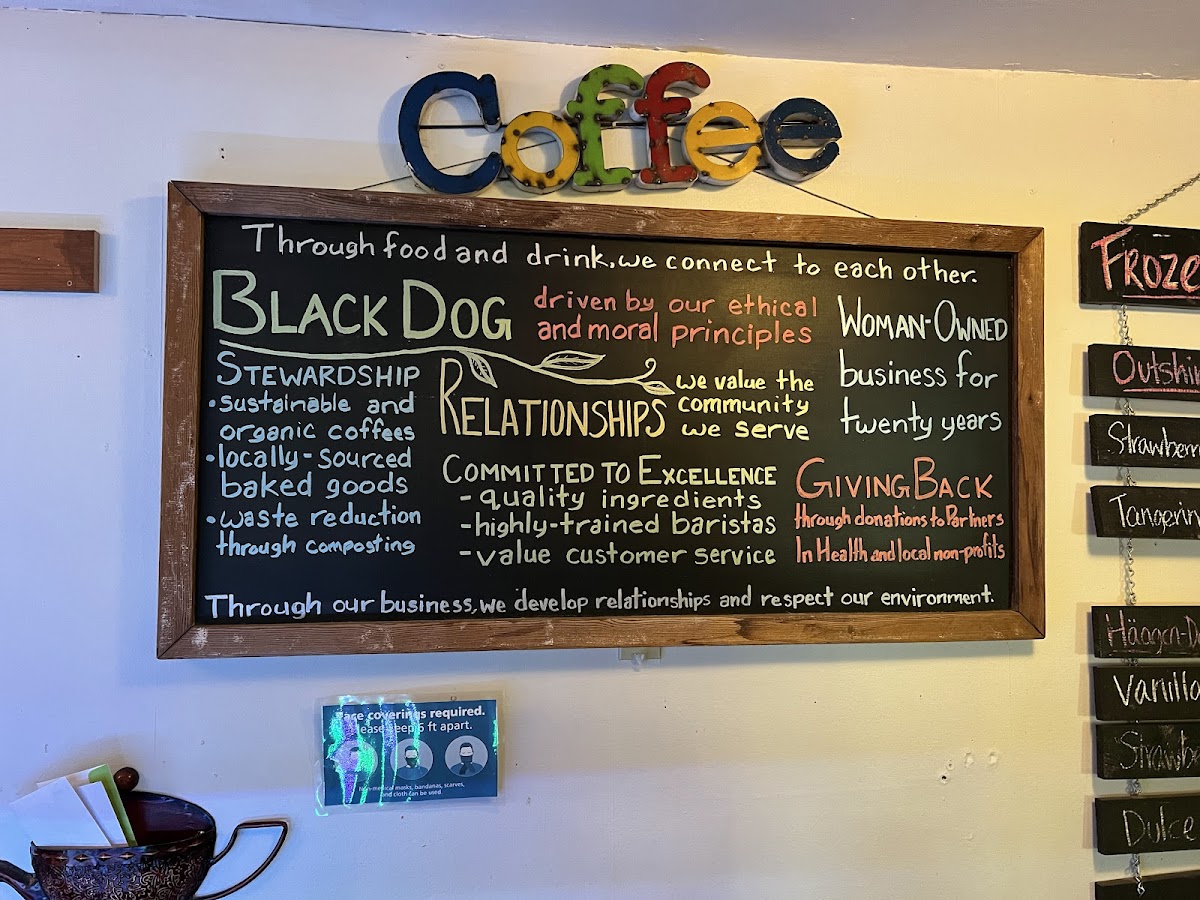 Coffee
Through food and drink, we connect to each other.
BLACK DOG
driven by our ethical
and moral principles
WOMAN-OWNED
business for
twenty years
STEWARDSHIP
• sustainable and
organic coffees
• locally-sourced
baked goods
• waste reduction
through composting
RELATIONSHIPS
we value the
community
we serve
COMMITTED TO EXCELLENCE
- quality ingredients
- highly-trained baristas
- value customer service
GIVING BACK
through donations to Partners
In Health and local non-profits
Through our business, we develop relationships and respect our environment.
Face coverings required.
Please keep 6 ft apart.
Non-medical masks, bandanas, scarves,
and cloth can be used.
FROZE
Outshin
Strawberr
Tangerin
Häagen-D
Vanilla
Strawbe
Dulce